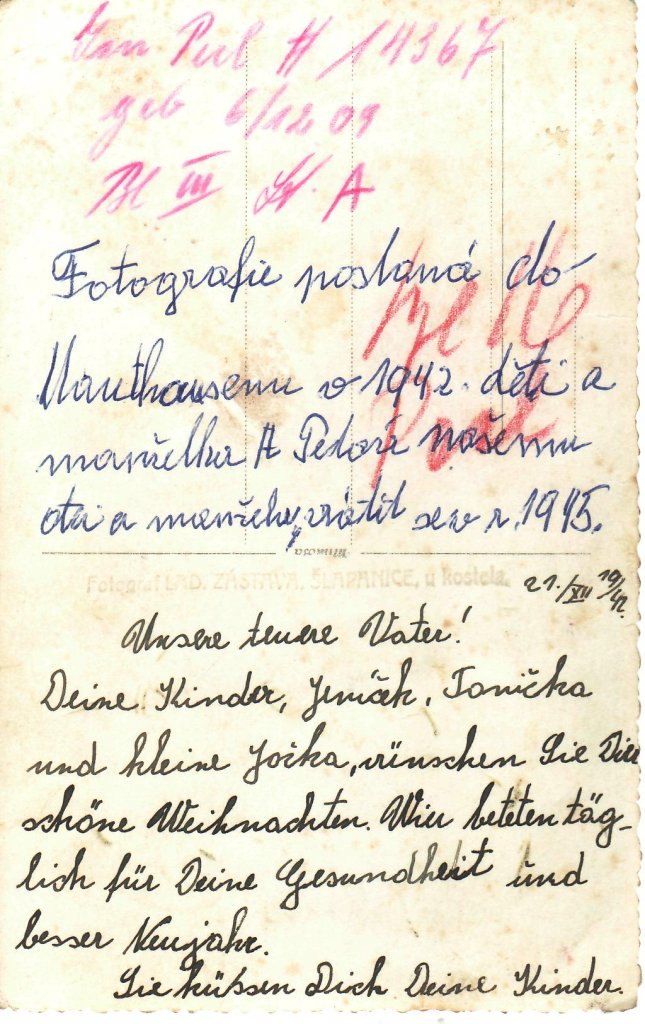 Jan Pecl # 14367
geb 6/12 09
Bl III St. A
Fotografie poslaná do
Bl 16
Mauthausenu v 1942. děti a
manželka
Post
našemu
otci a manželu, vrátil se v r. 1945.
Fotograf LAD. ZÁSTAVA, ŠLAPANICE, u kostela.
21./XII 19/42.
Unsere teuere Vater!
Deine Kinder, Jeníček, Tonička
und kleine Jožka, wünschen Sie Dir
schöne Weihnachten. Wier beteten täg-
lich für Deine Gesundheit und
besser Neujahr.
Sie küssen Dich Deine Kinder.